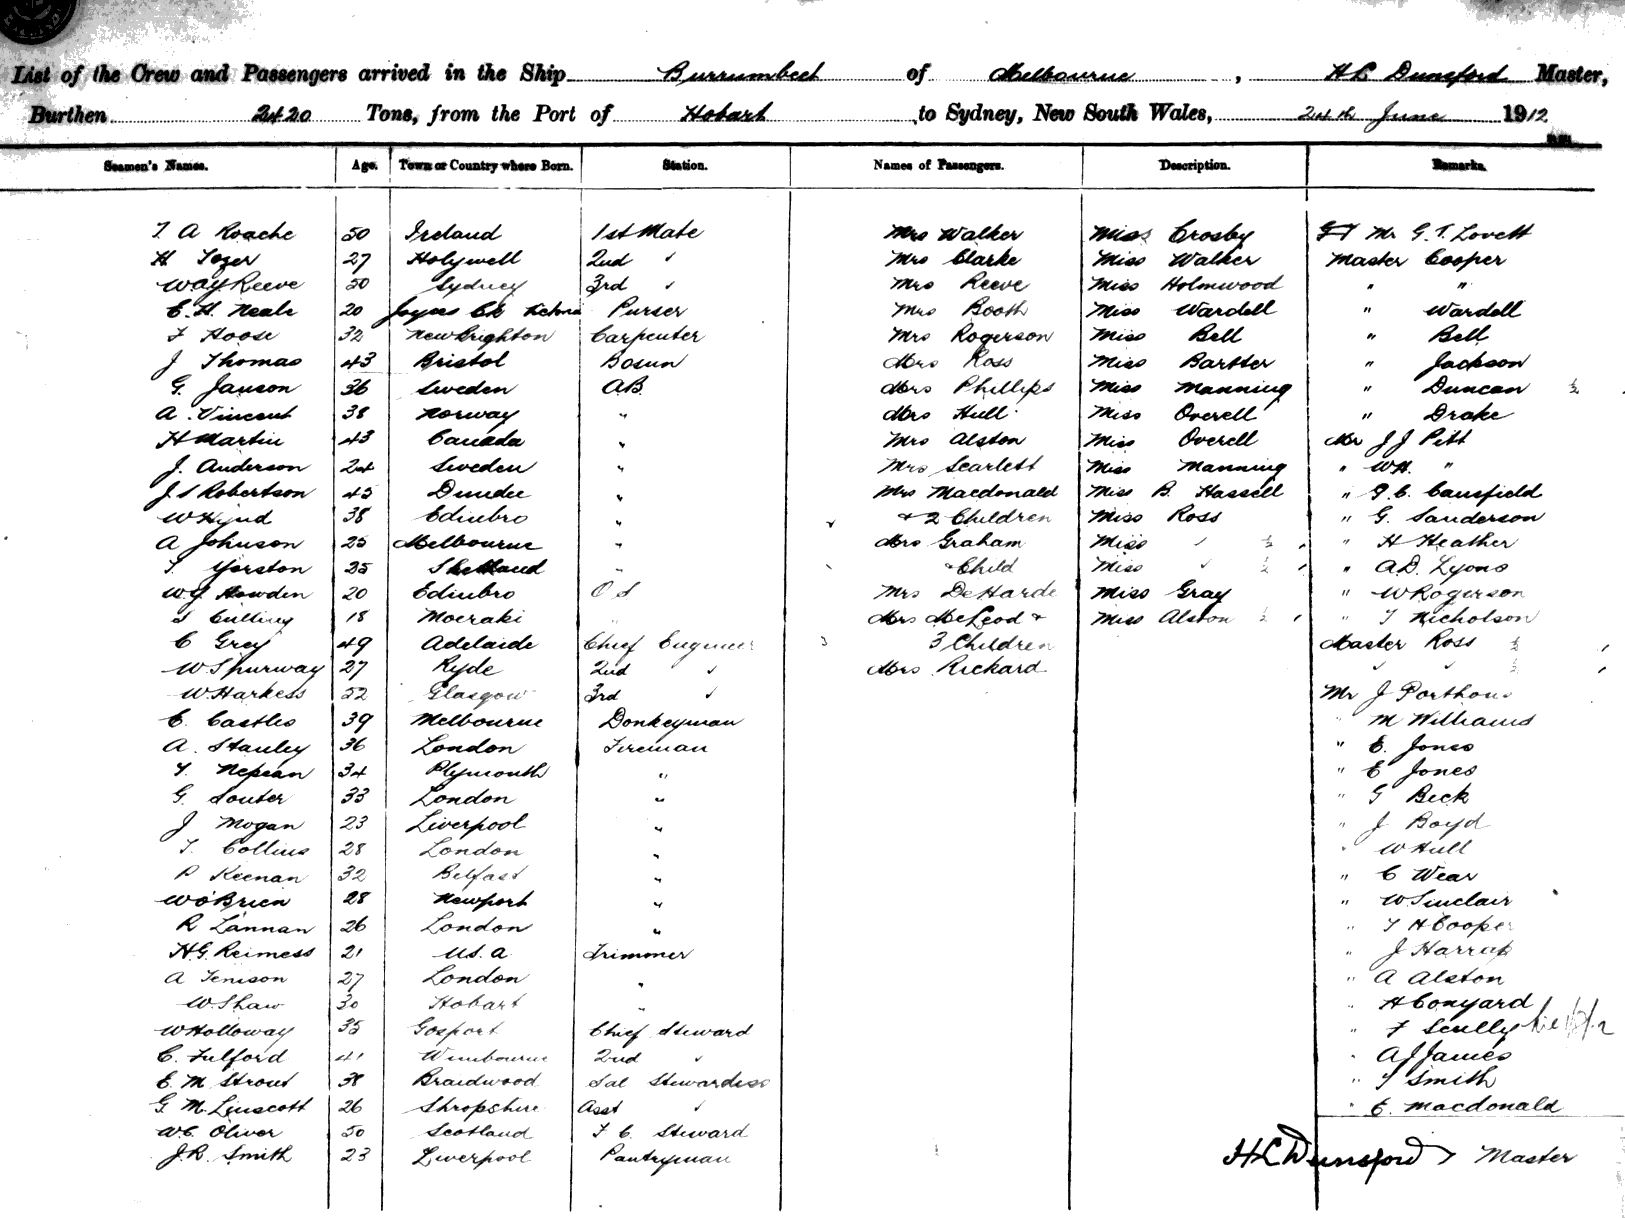 List of the Crew and Passengers arrived in the Ship Burrumbeet of Melbourne, H L Dunsford Master,
Burthen 2420 Tons, from the Port of Hobart to Sydney, New South Wales, 24th June 1912
Seamen's Names. Age. Town or Country where Born. Station. Names of Passengers. Description. Remarks.
T A Roache 50 Ireland 1st Mate Mrs Walker Miss Crosby Mr G. T. Lovett
H Tozer 27 Holywell 2nd " Mrs Clarke Miss Walker Master Cooper
WAY Reeve 50 Sydney 3rd " Mrs Reeve Miss Holmwood " "
E. H. Neale 20 Joyces Ck Victoria Purser Mrs Booth Miss Wardell " Wardell
F Hoose 32 New Brighton Carpenter Mrs Rogerson Miss Bell " Bell
J Thomas 43 Bristol Bosun Mrs Ross Miss Bartter " Jackson
G. Janson 36 Sweden AB. Mrs Phillips Miss Manning " Duncan ½
A. Vincent 38 Norway " Mrs Hull Miss Overell " Drake
H Martin 43 Canada " Mrs Alston Miss Overell Mr J J Pitt
J. Anderson 24 Sweden " Mrs Scarlett Miss Manning " WH. "
J S Robertson 45 Dundee " Mrs Macdonald Miss B. Hassell " Causfield
W Hynd 38 Edinbro " & 2 Children Miss Ross " G. Sanderson
A Johnson 25 Melbourne " Mrs Graham Miss " ½ " H Heather
T. Yorston 35 Shetland " & Child Miss " ½ " A.D. Lyons
W.G. Howden 20 Edinbro O S Mrs DeHarde Miss Gray " W Rogerson
S Culling 18 Moeraki " Mrs McLeod & Miss Alston ½ " T Nicholson
C Grey 49 Adelaide Chief Engineer 3 Children Master Ross ½
W Spurway 27 Ryde 2nd " Mrs Rickard " " ½
W. Harkess 52 Glasgow 3rd " Mr J Porthouse
C. Castles 39 Melbourne Donkeyman " M Williams
A. Stanley 36 London Fireman " E. Jones
T. Nepean 34 Plymouth " " E Jones
G. Souter 33 London " " G Beck
J Mogan 23 Liverpool " " J Boyd
T. Collins 28 London " " W Hull
P Keenan 32 Belfast " " C Wear
W O'Brien 28 Newport " " W Sinclair
R Lannan 26 London " " T H Cooper
H.G. Reimess 21 U.S.A Trimmer " J Harrap
A Tenison 27 London " " A Alston
W. Shaw 30 Hobart " " H Conyard
W Holloway 35 Gosport Chief Steward " F Scully
C. Fulford 41 Wimbourne 2nd " " A J James
E. M Strout 38 Braidwood Sal Stewardess " T Smith
G. M. Linscott 26 Shropshire Asst " " E. Macdonald
W.C. Oliver 50 Scotland F C. Steward
J.R. Smith 23 Liverpool Pantryman H L Dunsford Master